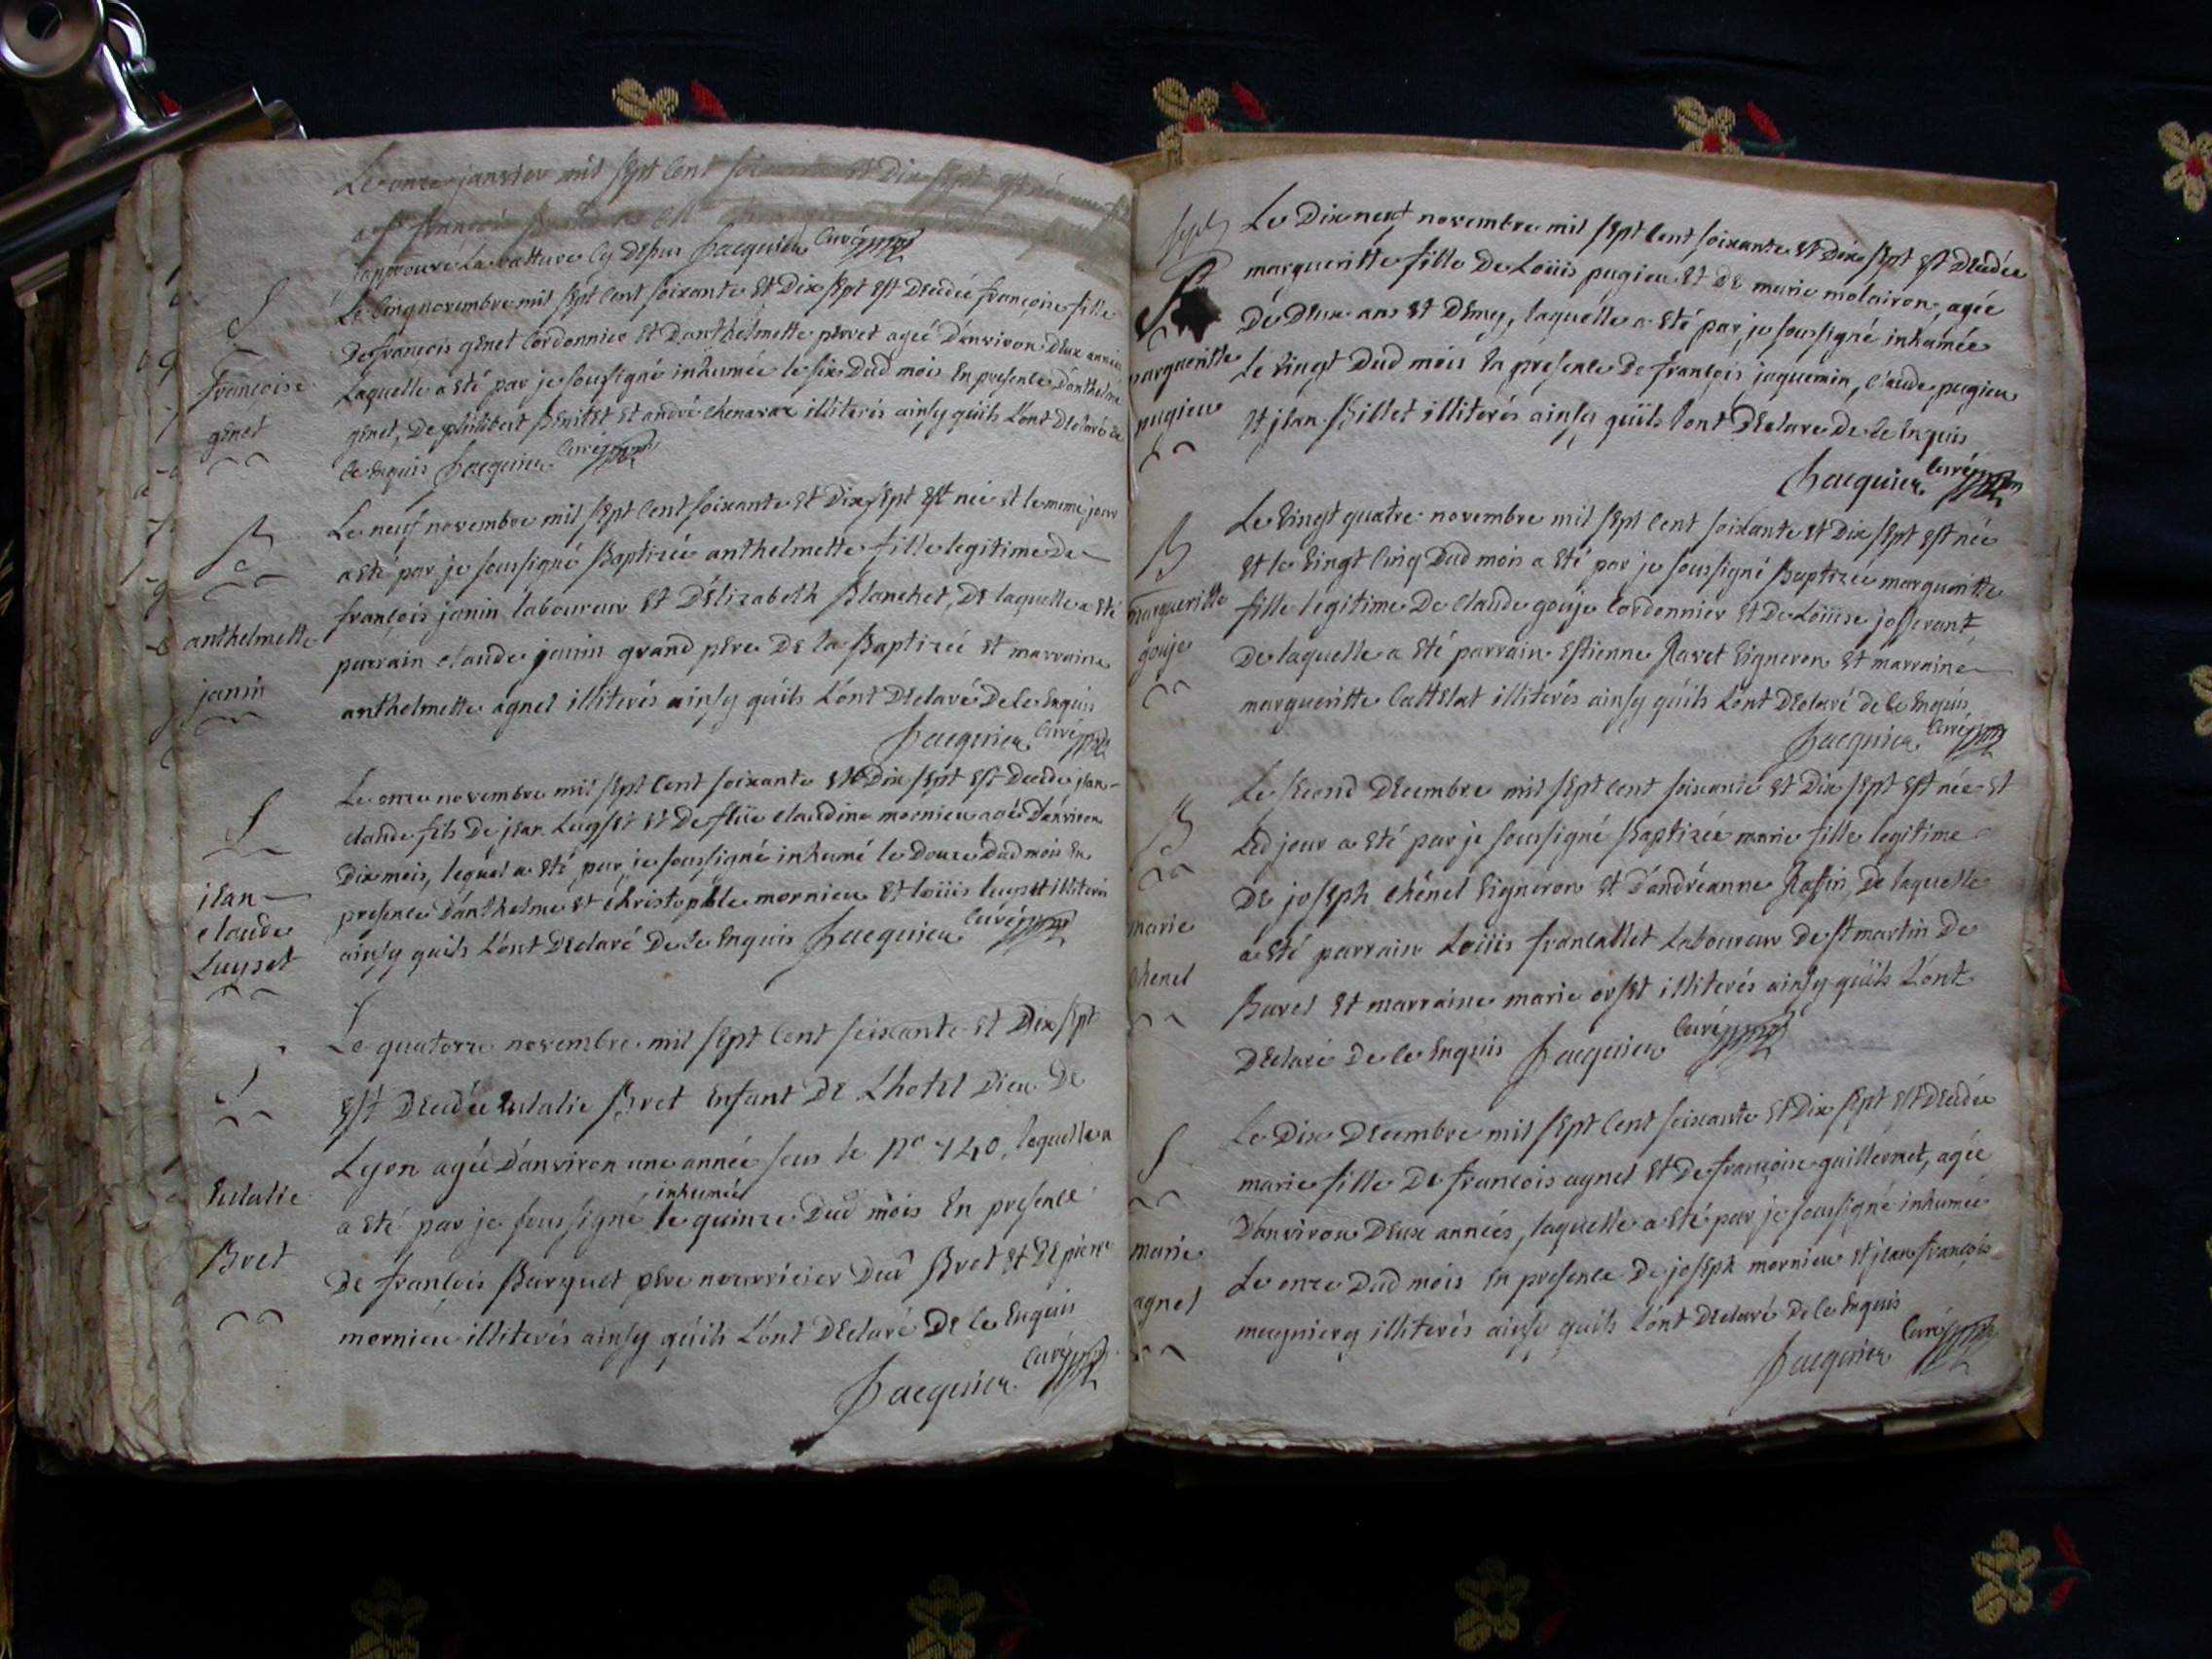 Le onze janvier mil sept cent soixante et Dix sept est née
j'approuve La ratture cy Dessus Jacquier Curé
S
françoise
genet
Le Cinq novembre mil sept Cent soixante et Dix sept est Decedée françoise fille
De francois genet Cordonnier et D'anthelmette perret ageé D'anviron Deux années
Laquelle a eté par je soussigné inhumée le six Dud mois En presence D'anthelme
genet, De philibert Benitet et andré chenavax illiterés ainsy quils L'ont Declaré de
ce Enquis Jacquier Curé
B
anthelmette
janin
Le neuf novembre mil sept Cent soixante et Dix sept est née et le meme jour
a eté par je soussigné Baptizée anthelmette fille legitime de
francois janin laboureur et D'Elizabeth Blanchet, De laquelle a eté
parrain claude janin grand pere De la Baptizée et marraine
anthelmette agnel illiterés ainsy quils L'ont Declaré De ce Enquis
Jacquier Curé
S
jean
claude
Luyset
Le onze novembre mil sept Cent soixante et Dix sept est Decedé jean
claude fils De jean Luyset et De ffüe claudine mornieu agé D'anviron
Dix mois, lequel a eté par je soussigné inhumé le Douze Dud mois En
presence D'anthelme et christophle mornieu et Loüis luyset illiterés
ainsy quils L'ont Declaré De ce Enquis Jacquier Curé
S
Eulalie
Bret
Le quatorze novembre mil sept Cent soixante et Dix sept
est Decedée Eulalie Bret Enfant De L'hotel Dieu De
Lyon agée D'anviron une année sous le n° 140, lequelle a
inhumée
a eté par je soussigné le quinze Dud mois En presence
De francois Barquet pere nourricier Dud Bret et De piere
mornieu illiterés ainsy quils L'ont Declaré De ce Enquis
Jacquier Curé
sept
S
margueritte
pugieu
Le Dix neuf novembre mil sept Cent soixante et Dix sept est Decedée
margueritte fille De Loüis pugieu et De marie molairon, agée
De Deux ans et Demy, laquelle a eté par je soussigné inhumée
Le Vingt Dud mois En presence De francois jaquemin, Claude pugieu
et jean Billet illiterés ainsy quils Lont Declare De ce Enquis
Jacquier Curé
B
margueritte
gouje
Le Vingt quatre novembre mil sept Cent soixante et Dix sept est née
et le Vingt Cinq Dud mois a eté par je soussigné Baptizée margueritte
fille legitime De Claude gouje Cordonnier et De Loüise josserant
De laquelle a eté parrain Estienne Ravet Vigneron et marraine
margueritte Cattelat illiterés ainsy quils L'ont Declaré de ce Enquis
Jacquier Curé
B
marie
chenel
Le second Decembre mil sept Cent soixante et Dix sept est née et
Led jour a eté par je soussigné Baptizée marie fille legitime
De joseph chenel Vigneron et D'andréanne Raffin, De laquelle
a eté parrain Loüis francallet Laboureur De st martin De
Bavel et marraine marie orset illiterés ainsy quils L'ont
Declaré De ce Enquis Jacquier Curé
S
marie
agnel
Le Dix Decembre mil sept Cent soixante et Dix sept est Decedée
marie fille De francois agnel et De françoise guillermet, agée
D'anviron Deux années, laquelle a eté par je soussigné inhumée
Le onze Dud mois En presence De joseph mornieu et jean francois
magnieng illiterés ainsy quils L'ont Declaré De ce Enquis
Jacquier Curé